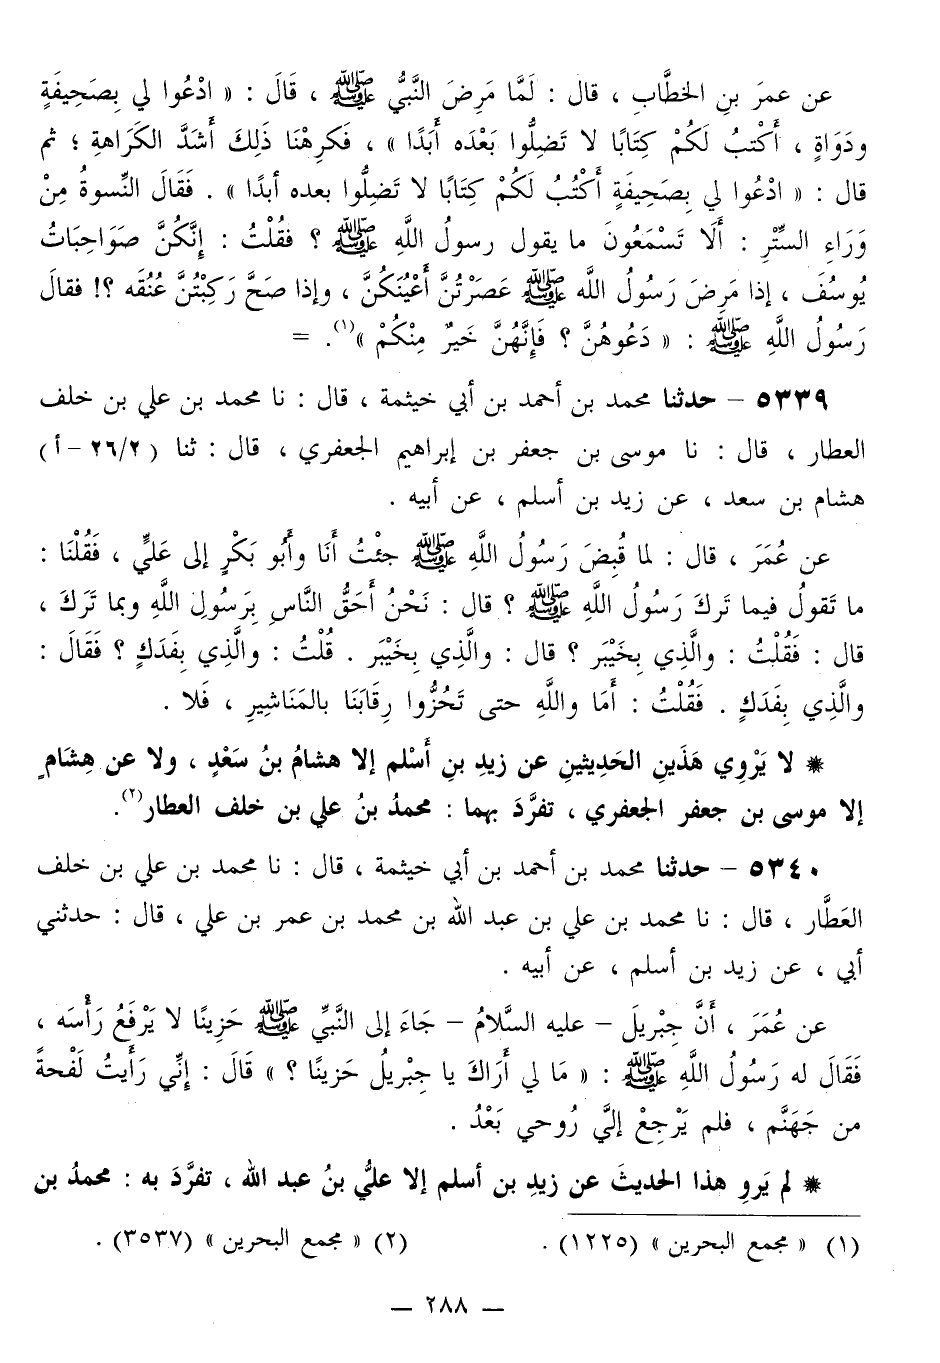 عن عمرَ بنِ الخطَّابِ ، قال : لَمَّا مَرِضَ النَّبيُّ ﷺ ، قَالَ : « ادْعُوا لي بِصَحِيفَةٍ
ودَوَاةٍ ، أَكْتبُ لَكُمْ كِتَابًا لا تَضِلُّوا بَعْدَه أَبَدًا » ، فَكرِهْنَا ذَلِكَ أَشَدَّ الكَرَاهةِ ؛ ثم
قال : « ادْعُوا لي بِصَحِيفَةٍ أَكْتُبُ لَكُمْ كِتَابًا لا تَضِلُّوا بعده أبدًا » . فَقَالَ النِّسوةُ مِنْ
وَرَاءِ السِّتْرِ : أَلَا تَسْمَعُونَ ما يقول رسولُ اللَّهِ ﷺ ؟ فقُلْتُ : إنَّكُنَّ صَوَاحِبَاتُ
يُوسُفَ ، إذا مَرِضَ رَسُولُ اللَّه ﷺ عَصَرْتُنَّ أَعْيُنَكُنَّ ، وإذا صَحَّ رَكِبْتُنَّ عُنُقَه ؟! فقالَ
رَسُولُ اللَّهِ ﷺ : « دَعُوهُنَّ ؟ فَإِنَّهُنَّ خَيرٌ مِنْكُمْ »(١). =
٥٣٣٩ – حدثنا محمد بن أحمد بن أبي خيثمة ، قال : نا محمد بن علي بن خلف
العطار ، قال : نا موسى بن جعفر بن إبراهيم الجعفري ، قال : ثنا ( ٢٦/٢ – أ )
هشام بن سعد ، عن زيد بن أسلم ، عن أبيه .
عن عُمَرَ ، قال : لما قُبِضَ رَسُولُ اللَّهِ ﷺ جئْتُ أَنَا وأَبُو بَكْرٍ إلى عَليٍّ ، فَقُلْنَا :
ما تَقولُ فيما تَركَ رَسُولُ اللَّهِ ﷺ ؟ قال : نَحْنُ أَحَقُّ النَّاسِ بِرَسُولِ اللَّهِ وبما تَرَكَ ،
قال : فَقُلْتُ : والَّذِي بِخَيْبَر ؟ قال : والَّذي بِخَيْبَر . قُلْتُ : والَّذِي بِفَدَكٍ ؟ فقَالَ :
والَّذِي بِفَدَكٍ . فَقُلْتُ : أَمَا واللَّهِ حتى تَحُزُّوا رِقَابَنَا بالمَنَاشِيرِ ، فَلا .
* لا يَرْوِي هَذَينِ الحَدِيثينِ عن زيدِ بنِ أَسْلم إلا هشامُ بنُ سَعْدٍ ، ولا عن هِشَامٍ
إلا موسى بن جعفر الجعفري ، تفرَّدَ بهما : محمدُ بنُ علي بن خلف العطار(٢).
٥٣٤٠ – حدثنا محمد بن أحمد بن أبي خيثمة ، قال : نا محمد بن علي بن خلف
العَطَّار ، قال : نا محمد بن علي بن عبد الله بن محمد بن عمر بن علي ، قال : حدثني
أبي ، عن زيد بن أسلم ، عن أبيه .
عن عُمَرَ ، أَنَّ جِبْريلَ – عليه السَّلامُ – جَاءَ إلى النَّبيِّ ﷺ حَزِينًا لا يَرْفَعُ رَأْسَه ،
فَقَالَ له رَسُولُ اللَّهِ ﷺ : « مَا لي أَرَاكَ يا جِبْريلُ حَزينًا ؟ » قَالَ : إنِّي رَأَيتُ لَفْحةً
من جَهَنَّم ، فلم يَرْجِعْ إليَّ رُوحي بَعْدُ .
* لم يَروِ هذا الحديثَ عن زيدِ بن أسلم إلا عليُّ بنُ عبد الله ، تفرَّدَ به : محمدُ بن
(١) « مجمع البحرين » (١٢٢٥) .
(٢) « مجمع البحرين » (٣٥٣٧) .
– ٢٨٨ –